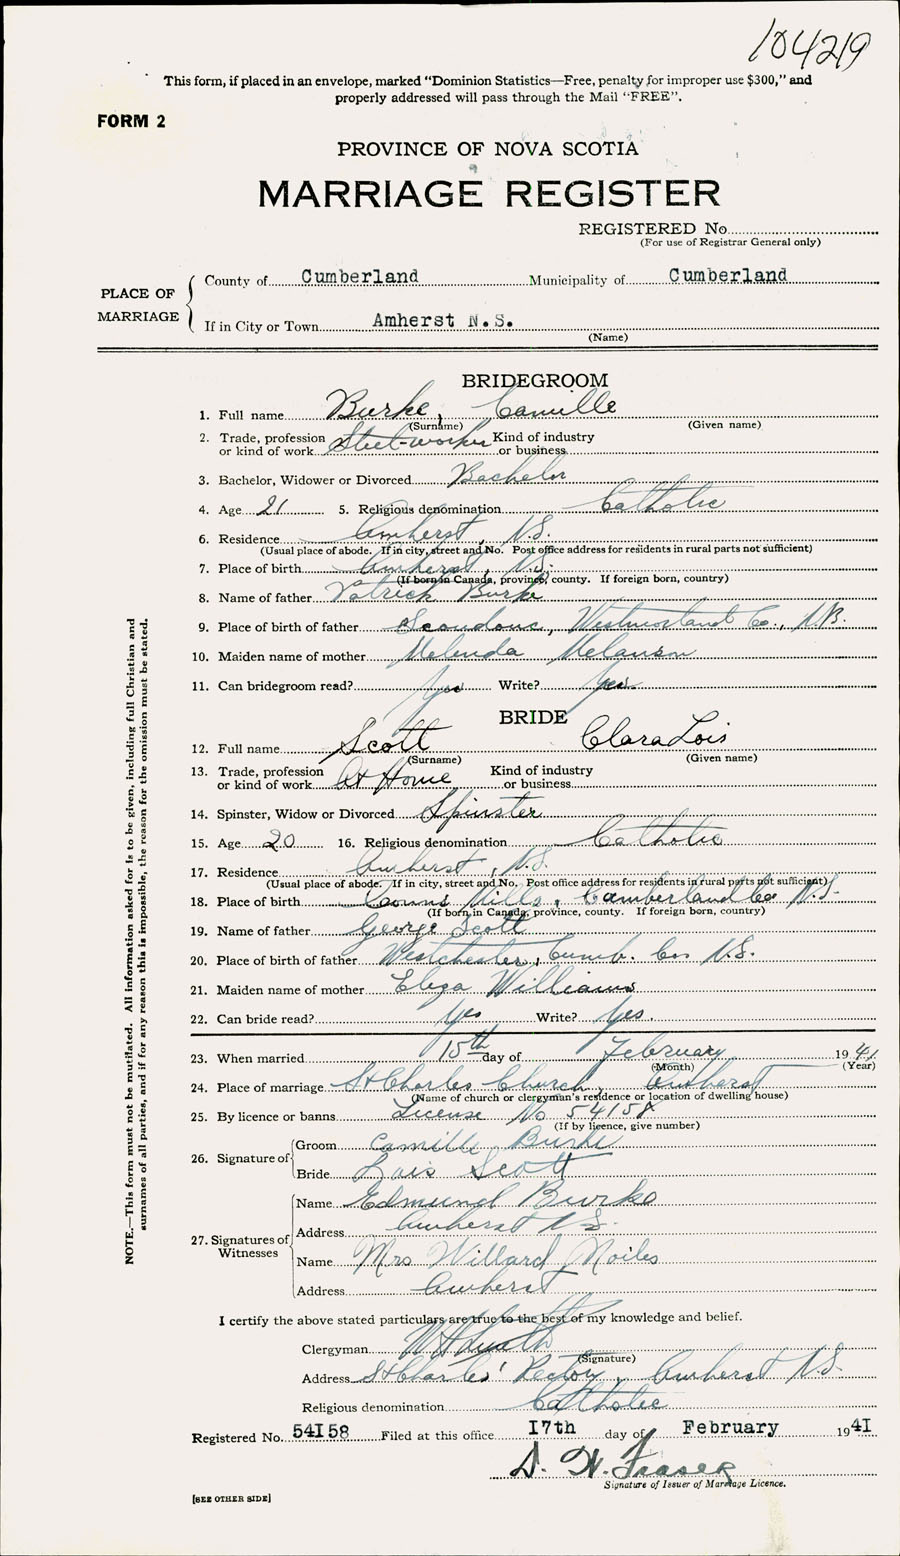 104219
This form, if placed in an envelope, marked “Dominion Statistics—Free, penalty for improper use $300,” and
properly addressed will pass through the Mail “FREE”.
FORM 2
PROVINCE OF NOVA SCOTIA
MARRIAGE REGISTER
REGISTERED No.
(For use of Registrar General only)
PLACE OF MARRIAGE
County of Cumberland Municipality of Cumberland
If in City or Town Amherst N.S.
(Name)
BRIDEGROOM
1. Full name Burke, Camille
(Surname) (Given name)
2. Trade, profession or kind of work Steel-worker Kind of industry or business
3. Bachelor, Widower or Divorced Bachelor
4. Age 21 5. Religious denomination Catholic
6. Residence Amherst, N.S.
(Usual place of abode. If in city, street and No. Post office address for residents in rural parts not sufficient)
7. Place of birth Amherst, N.S.
(If born in Canada, province, county. If foreign born, country)
8. Name of father Patrick Burke
9. Place of birth of father Scoudouc, Westmorland Co., N.B.
10. Maiden name of mother Melinda Melanson
11. Can bridegroom read? Yes Write? Yes
BRIDE
12. Full name Scott Clara Lois
(Surname) (Given name)
13. Trade, profession or kind of work At Home Kind of industry or business
14. Spinster, Widow or Divorced Spinster
15. Age 20 16. Religious denomination Catholic
17. Residence Amherst, N.S.
(Usual place of abode. If in city, street and No. Post office address for residents in rural parts not sufficient)
18. Place of birth Mills, Cumberland Co N.S.
(If born in Canada, province, county. If foreign born, country)
19. Name of father George Scott
20. Place of birth of father Westchester, Cumb. Co. N.S.
21. Maiden name of mother Eliza Williams
22. Can bride read? Yes Write? Yes.
23. When married 15th day of February 1941
(Month) (Year)
24. Place of marriage St Charles Church, Amherst
(Name of church or clergyman's residence or location of dwelling house)
25. By licence or banns License No 54158
(If by licence, give number)
26. Signature of
Groom Camille Burke
Bride Lois Scott
27. Signatures of Witnesses
Name Edmund Burke
Address Amherst N.S.
Name Mrs Willard Noiles
Address Amherst
I certify the above stated particulars are true to the best of my knowledge and belief.
Clergyman
(Signature)
Address St Charles' Rectory, Amherst N.S.
Religious denomination Catholic
Registered No. 54158 Filed at this office 17th day of February 1941
D. W. Fraser
Signature of Issuer of Marriage Licence.
[SEE OTHER SIDE]
NOTE.—This form must not be mutilated. All information asked for is to be given, including full Christian and
surnames of all parties, and if for any reason this is impossible, the reason for the omission must be stated.